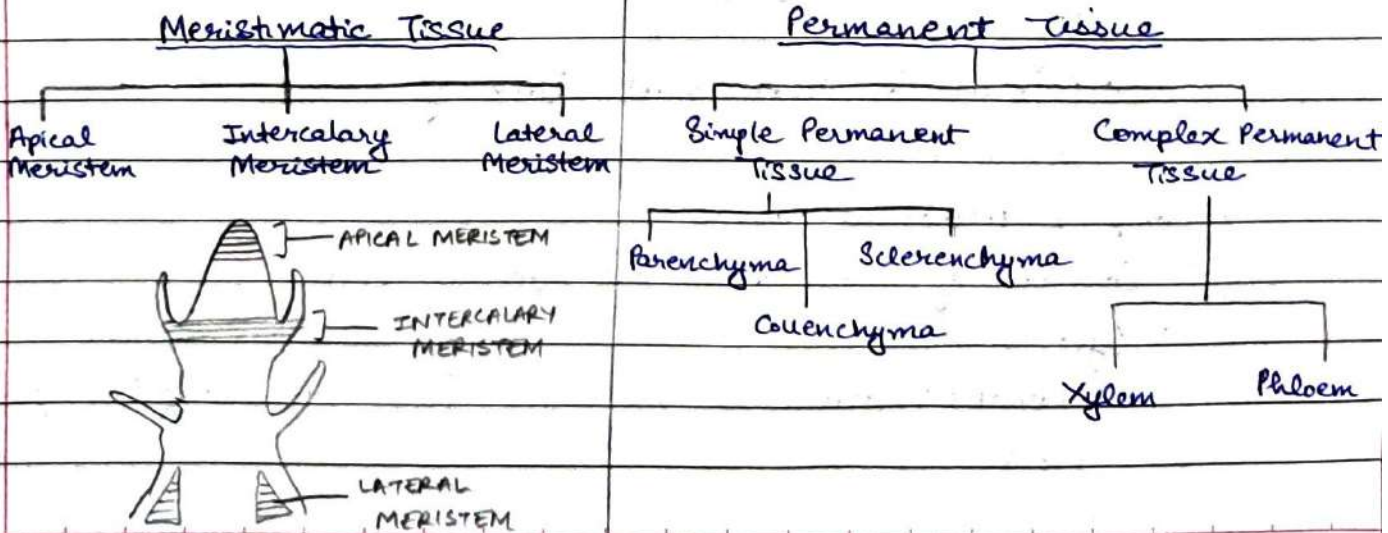 Meristimatic Tissue
Apical
Meristem
Intercalary
Meristem
Lateral
Meristem
APICAL MERISTEM
INTERCALARY
MERISTEM
LATERAL
MERISTEM
Permanent Tissue
Simple Permanent
Tissue
Complex Permanent
Tissue
Parenchyma
Sclerenchyma
Collenchyma
Xylem
Phloem